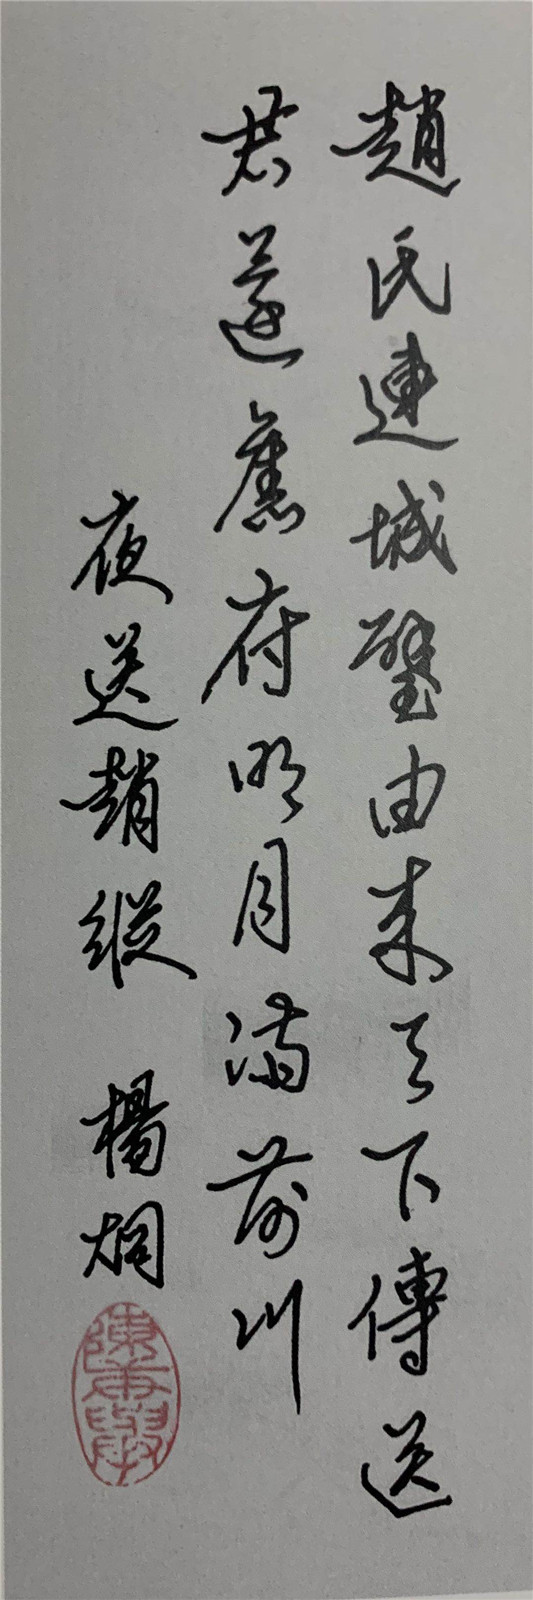 趙氏連城璧由來天下傳送
君還舊府明月滿前川
夜送趙縱 楊炯